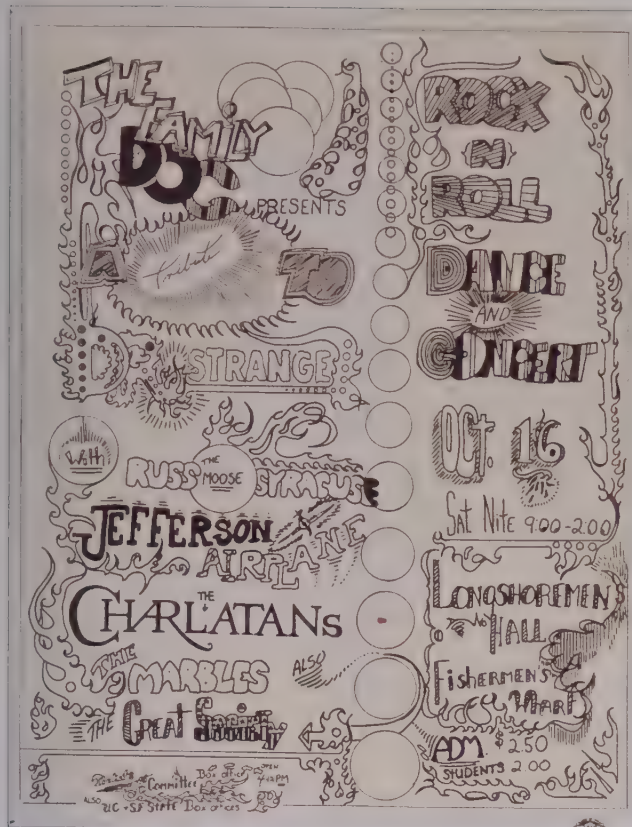 THE
FAMILY
DOG
PRESENTS
A tribute TO
Dr. STRANGE
With
RUSS THE MOOSE SYRACUSE
JEFFERSON
AIRPLANE
THE
CHARLATANS
THE
MARBLES
ALSO
THE GREAT Society
Committee Box office
ALSO UC + SF STATE Box offices
ROCK
N
ROLL
DANCE
AND
CONCERT
OCT. 16
Sat Nite 9:00-2:00
LONGSHOREMEN'S
HALL
Fishermen's
Wharf
ADM. $2.50
STUDENTS 2.00